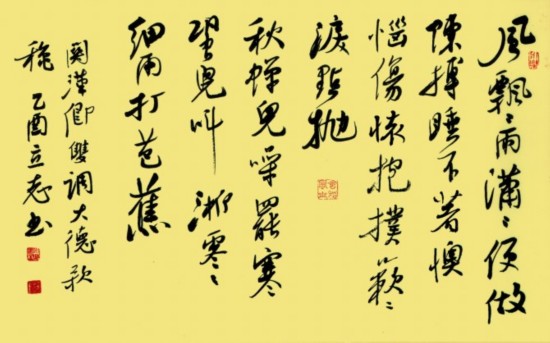 風飄〻雨瀟〻便做
陳摶睡不著懊
惱傷懷抱撲簌〻
淚點拋
秋蟬兒噪罷寒
蛩兒叫淅零〻
細雨打芭蕉
關漢卿雙調大德歌
秋 乙酉立志書